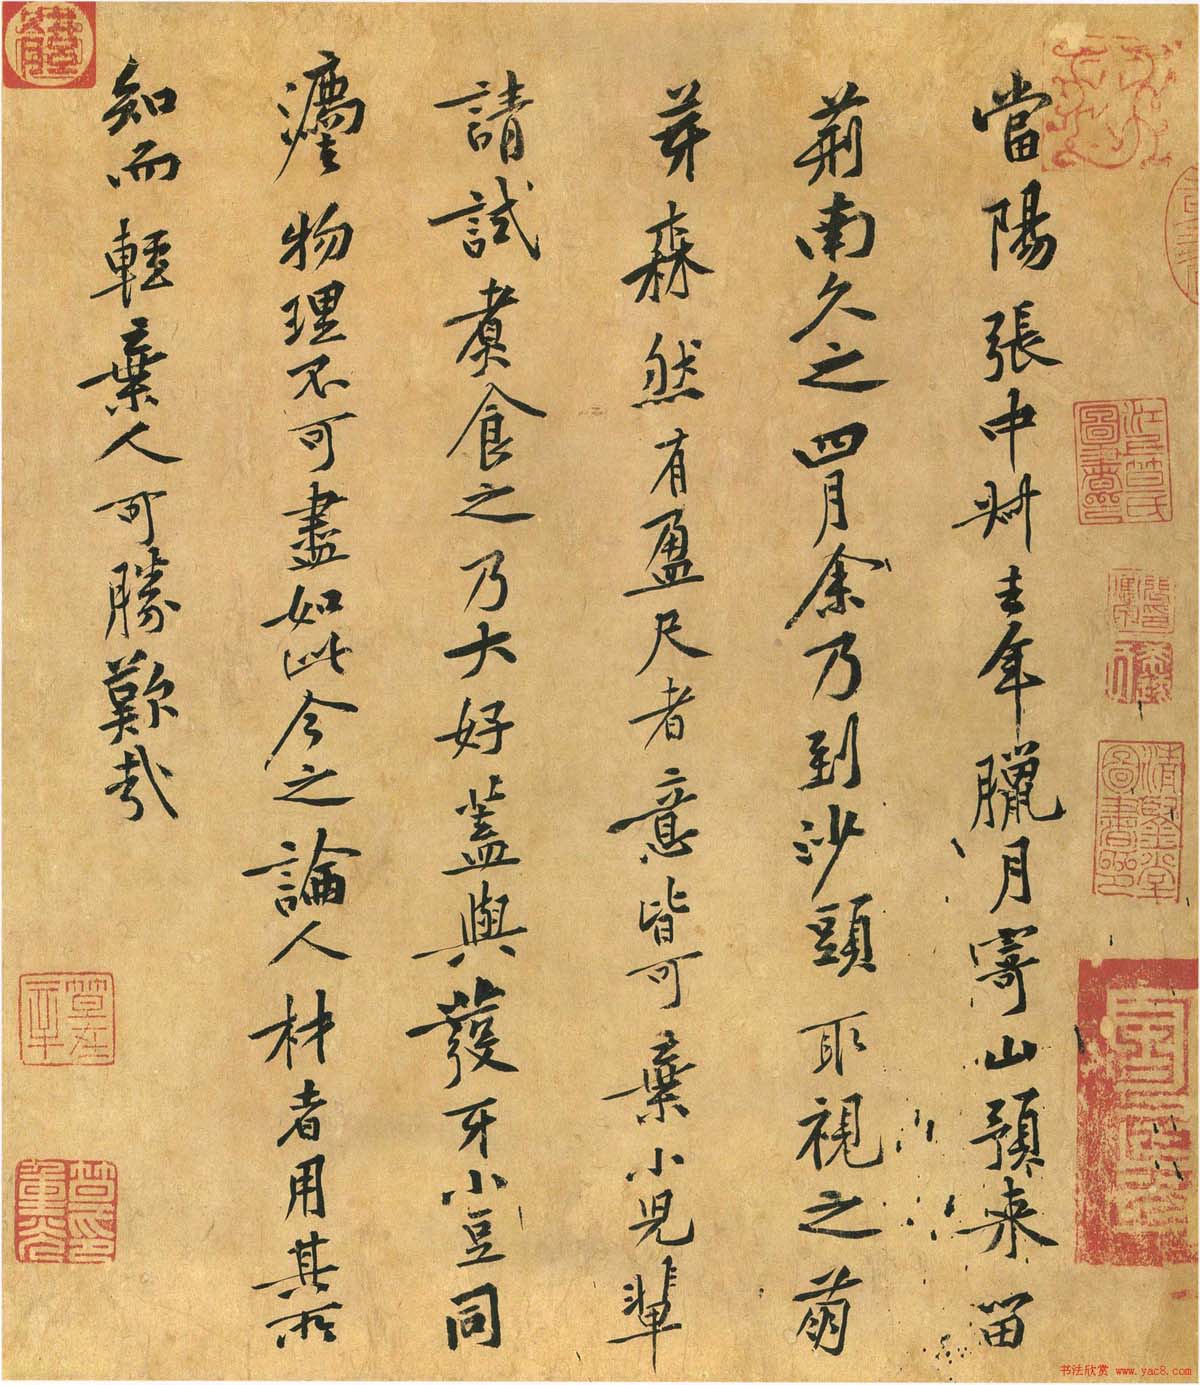 當陽張中叔去年臘月寄山預来留
荊南久之四月余乃到沙頭取視之萌
芽森然有盈尺者意皆可棄小兒輩
請試煮食之乃大好蓋與發牙小豆同
瀍物理不可盡如此今之論人材者用其所
知而輕棄人可勝歎哉
書法欣赏 www.yac8.com